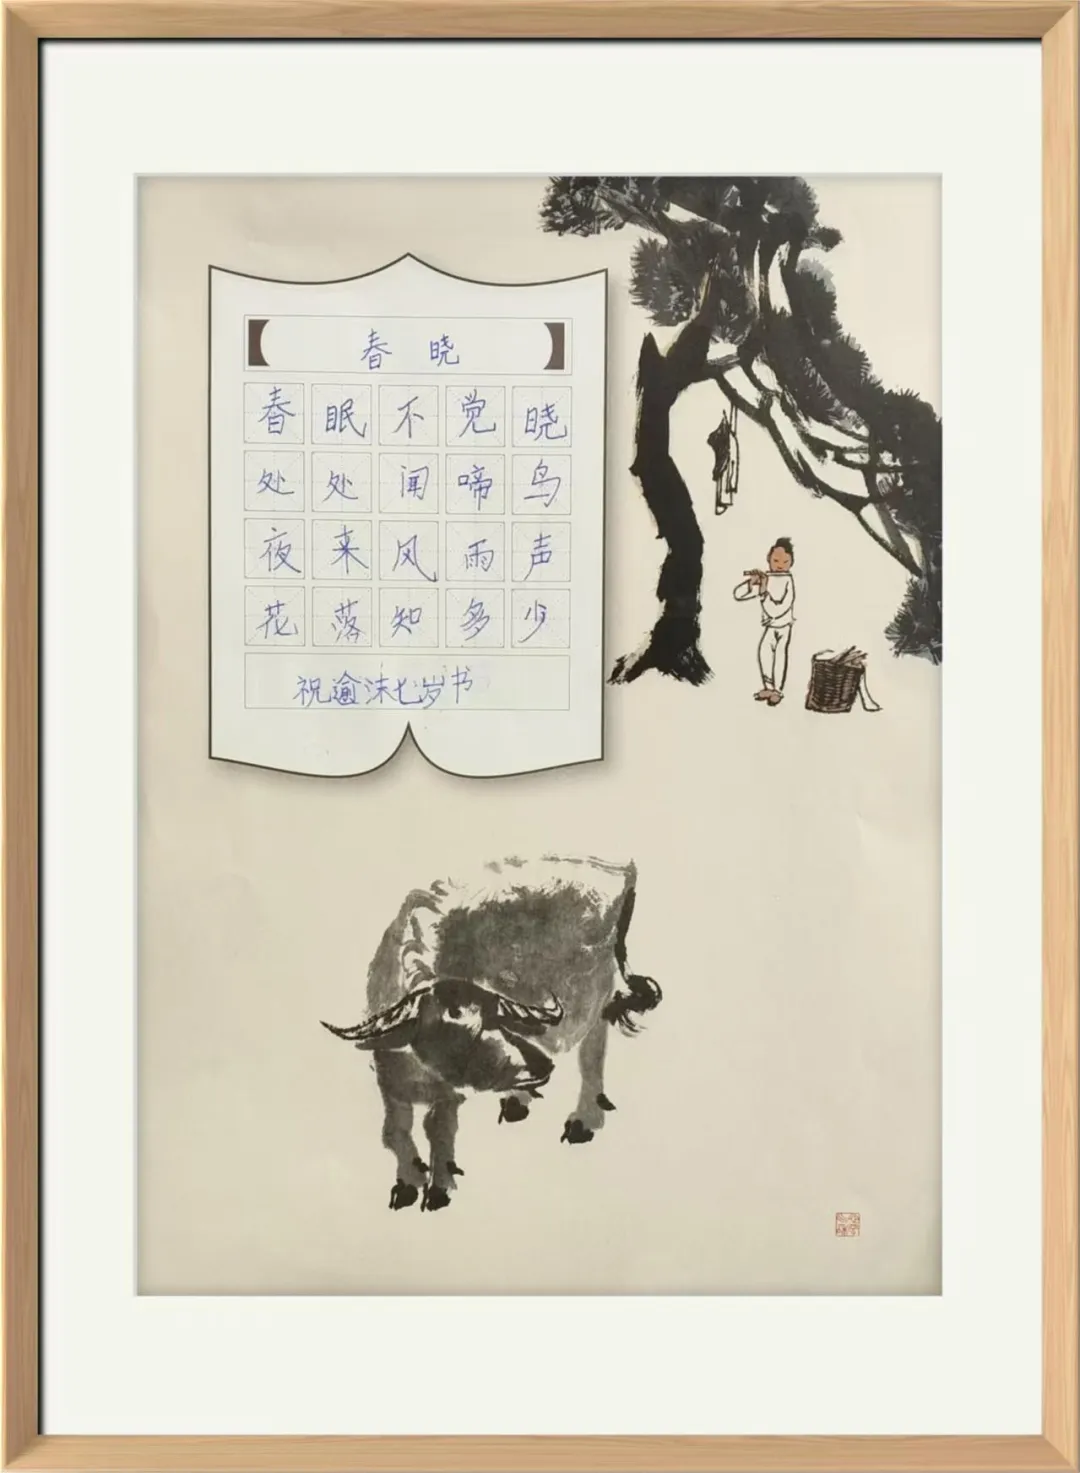 春晓
春眠不觉晓
处处闻啼鸟
夜来风雨声
花落知多少
祝逾沫七岁书